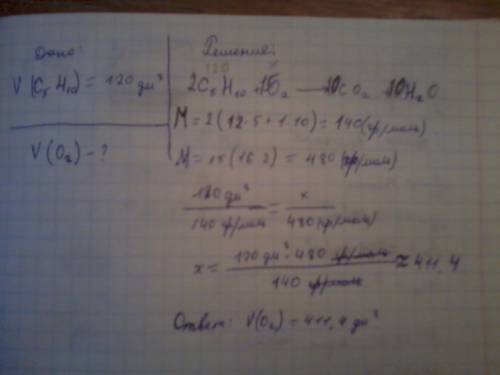 Дано:
V (C₅H₁₀) = 120 дм³
V(O₂) – ?
Решение:
120
2C₅H₁₀ + 15O₂ — 10CO₂ 10H₂O
M = 2(12·5+1·10) = 140(гр/моль)
M = 15(16·2) = 480 (гр/моль)
120 дм³ / 140 гр/моль = x / 480(гр/моль)
x = 120 дм³·480 гр/моль / 140 гр/моль ≈ 411,4
Ответ: V(O₂) = 411,4 дм³